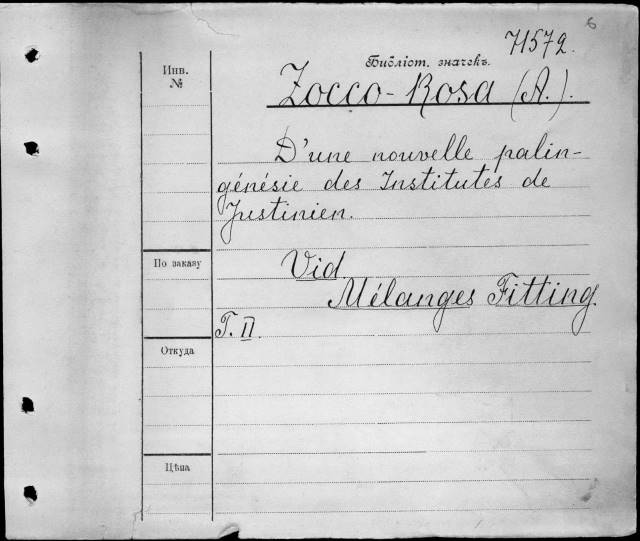 6
71572.
Библіот. значекъ.
Инв.
№
Zocco-Rosa (A.).
D'une nouvelle palin-
génésie des Institutes de
Justinien.
По заказу
Vid.
Mélanges Fitting.
T. II.
Откуда
Цѣна